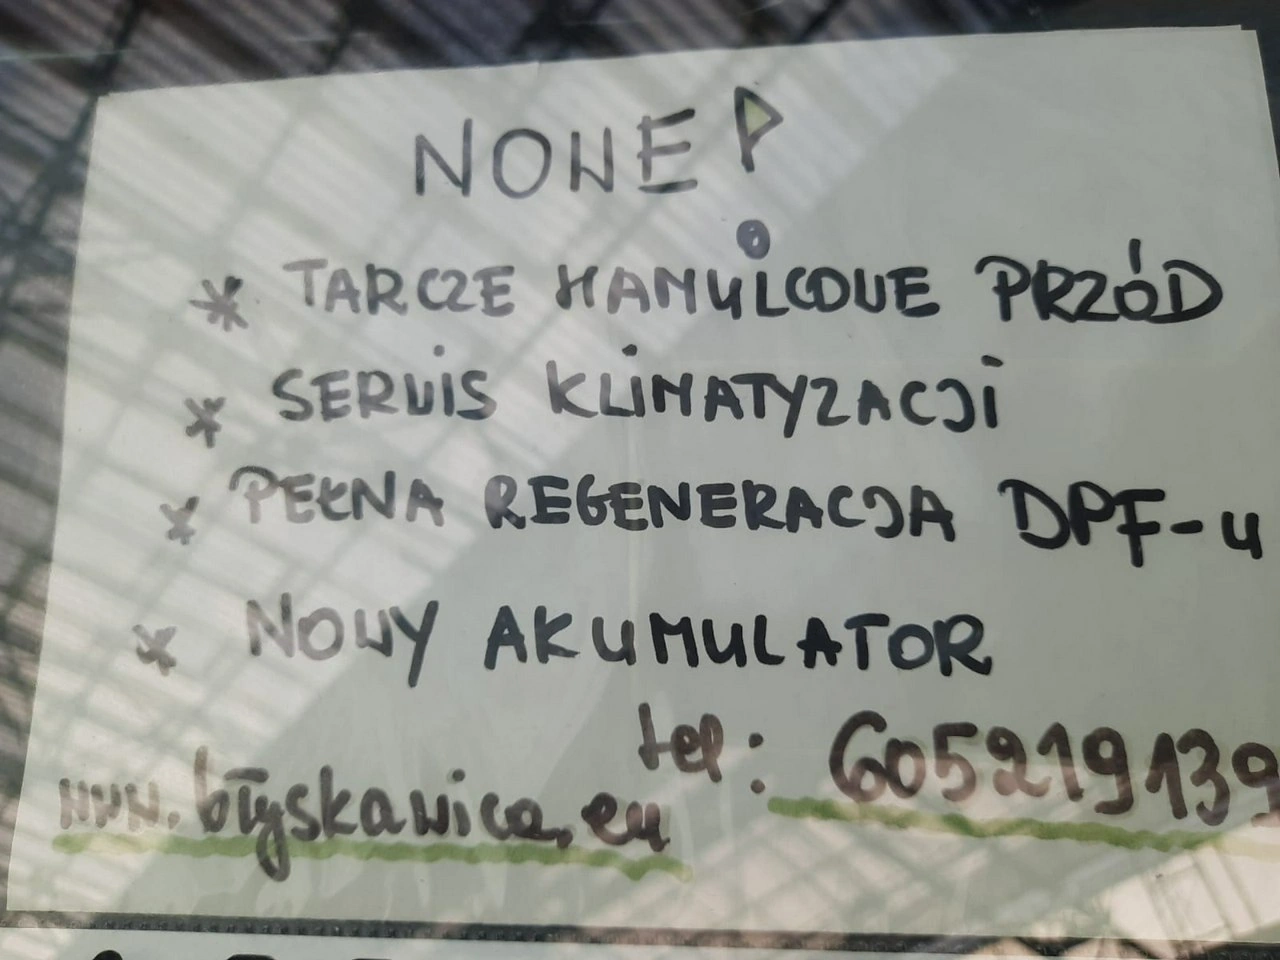 NOWE!
* TARCZE HAMULCOWE PRZÓD
* SERWIS KLIMATYZACJI
* PEŁNA REGENERACJA DPF-u
* NOWY AKUMULATOR
tel: 605219139
www.błyskawica.eu